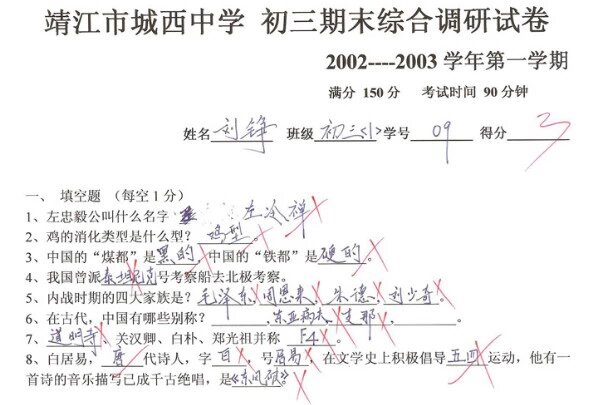 靖江市城西中学 初三期末综合调研试卷
2002----2003 学年第一学期
满分 150 分 考试时间 90 分钟
姓名 刘铮 班级 初三<1> 学号 09 得分 3
一、 填空题 (每空 1 分)
1、左忠毅公叫什么名字 左冷禅
2、鸡的消化类型是什么型? 鸡型。
3、中国的“煤都”是黑的,中国的“铁都”是硬的。
4、我国曾派泰坦尼克号考察船去北极考察。
5、内战时期的四大家族是? 毛泽东、周恩来、朱德、刘少奇。
6、在古代,中国有哪些别称? ,东亚病夫,支那。
7、道明寺、关汉卿、白朴、郑光祖并称 F4。
8、白居易, 唐 代诗人,字 白,号居易,在文学史上积极倡导五四运动,他有一
首诗的音乐描写已成千古绝唱,是《东风破》。